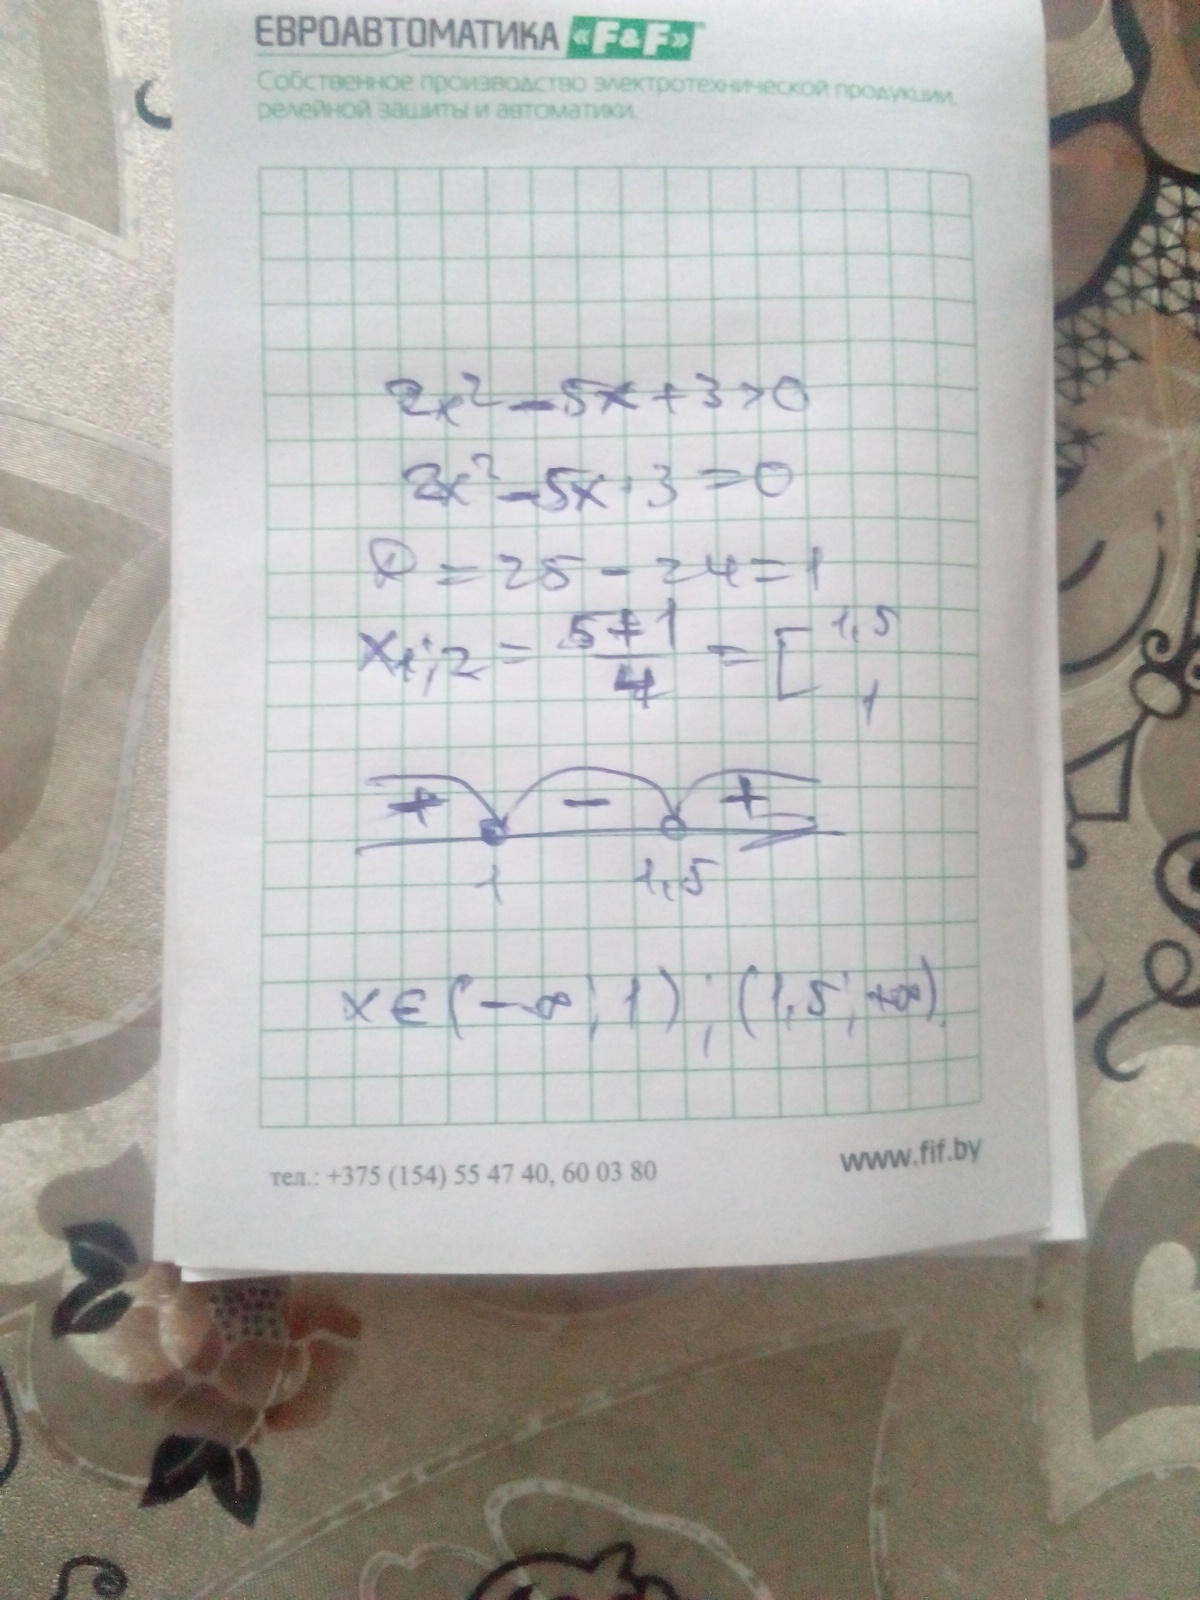 ЕВРОАВТОМАТИКА «F&F»
Собственное производство электротехнической продукции,
релейной защиты и автоматики.
2x² - 5x + 3 > 0
2x² - 5x + 3 = 0
D = 25 - 24 = 1
x₁;₂ = (5 ± 1)/4 = [ 1,5
1
+ - +
1 1,5
x ∈ (-∞; 1) ; (1,5; +∞).
тел.: +375 (154) 55 47 40, 60 03 80 www.fif.by